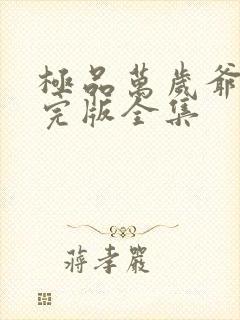 極品萬歲爺
完版全集
蔣孝嚴